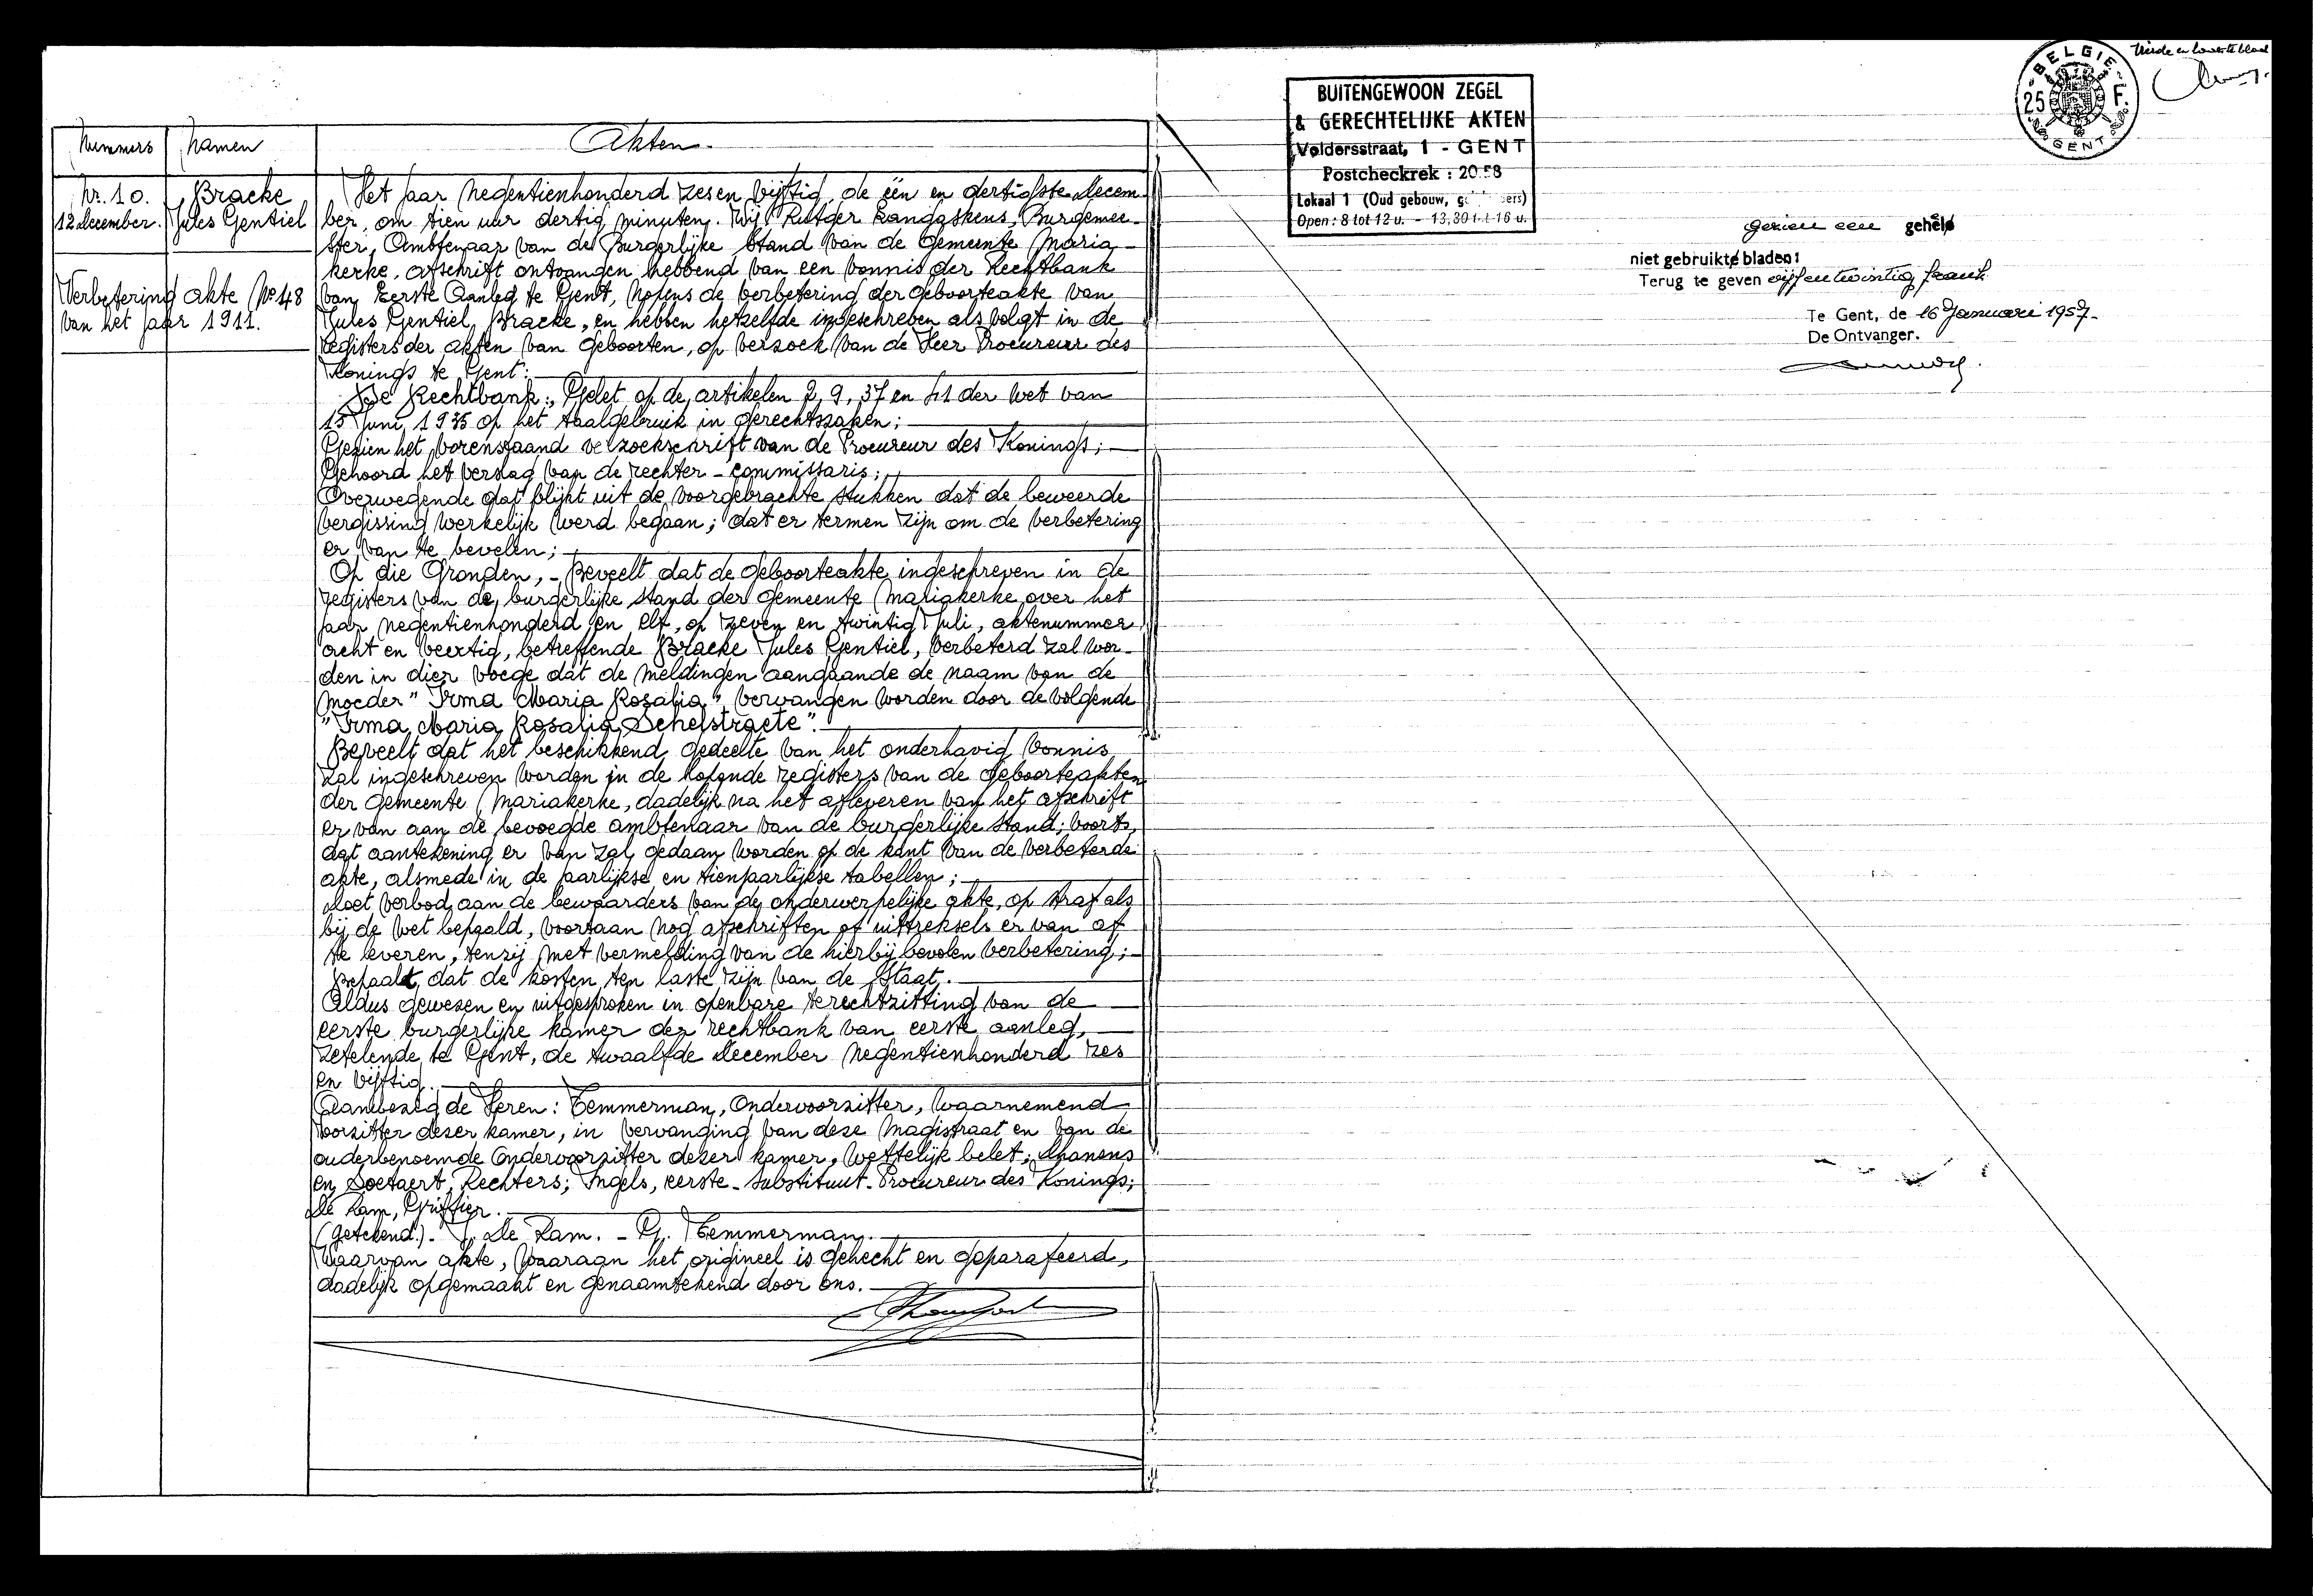 Nummers
Namen
Akten.
Nr. 10.
12 december.
Bracke
Jules Gentiel
Verbetering akte Nº 48
van het jaar 1911.
Het jaar negentienhonderd zesen vijftig, de één en dertigste decem
ber, om tien uur dertig minuten. Wij Rutger Langaskens, Burgemee-
ster, Ambtenaar van de Burgerlijke Stand van de Gemeente Maria-
kerke, afschrift ontvangen hebbend van een vonnis der Rechtbank
van Eerste Aanleg te Gent, nopens de verbetering der geboorteakte van
Jules Gentiel Bracke, en hebben hetzelfde ingeschreven als volgt in de
registers der akten van geboorten, op verzoek van de Heer Procureur des
Konings te Gent:
De Rechtbank: Gelet op de artikelen 2, 9, 37 en 41 der wet van
15 Juni 1935 op het taalgebruik in gerechtszaken;
Gezien het vorenstaand verzoekschrift van de Procureur des Konings;
Gehoord het verslag van de rechter-commissaris;
Overwegende dat blijkt uit de voorgebrachte stukken dat de beweerde
vergissing werkelijk werd begaan; dat er termen zijn om de verbetering
er van te bevelen;
Op die Gronden, - Beveelt dat de geboorteakte ingeschreven in de
registers van de burgerlijke stand der gemeente Mariakerke over het
jaar negentienhonderd en elf, op zeven en twintig Juli, aktenummer
acht en veertig, betreffende Bracke Jules Gentiel, verbeterd zal wor-
den in dier voege dat de meldingen aangaande de naam van de
moeder "Irma Maria Rosalia" vervangen worden door de volgende
"Irma Maria Rosalia Schelstraete".
Beveelt dat het beschikkend gedeelte van het onderhavig vonnis
zal ingeschreven worden in de lopende registers van de geboorteakten
der gemeente Mariakerke, dadelijk na het afleveren van het afschrift
er van aan de bevoegde ambtenaar van de burgerlijke stand; voorts,
dat aantekening er van zal gedaan worden op de kant van de verbeterde
akte, alsmede in de jaarlijkse en tienjaarlijkse tabellen;
Doet verbod aan de bewaarders van de onderwerpelijke akte, op straf als
bij de wet bepaald, voortaan nog afschriften of uittreksels er van af
te leveren, tenzij met vermelding van de hierbij bevolen verbetering;
Bepaalt dat de kosten ten laste zijn van de Staat.
Aldus gewezen en uitgesproken in openbare terechtzitting van de
eerste burgerlijke kamer der rechtbank van eerste aanleg,
zetelende te Gent, de twaalfde december negentienhonderd zes
en vijftig.
Aanwezig de Heren: Temmerman, Ondervoorzitter, waarnemend
voorzitter dezer kamer, in vervanging van deze magistraat en van de
ouderbenoemde ondervoorzitter dezer kamer, wettelijk belet; Dhanens
en Soetaert, Rechters; Ingels, eerste-substituut-Procureur des Konings;
De Lam, Griffier.
(getekend.)- J. De Lam. - G. Temmerman.
Waarvan akte, waaraan het origineel is gehecht en geparafeerd,
dadelijk opgemaakt en genaamtekend door ons.
BUITENGEWOON ZEGEL
& GERECHTELIJKE AKTEN
Voldersstraat, 1 - GENT
Postcheckrek : 20.58
Lokaal 1 (Oud gebouw,
Open : 8 tot 12 u. - 13,30 t.t 16 u.
BELGIE
25 F.
GENT
Vierde en laatste blad
gezien een geheel
niet gebruikte bladen:
Terug te geven vijfentwintig frank
Te Gent, de 16 Januari 1957.
De Ontvanger.